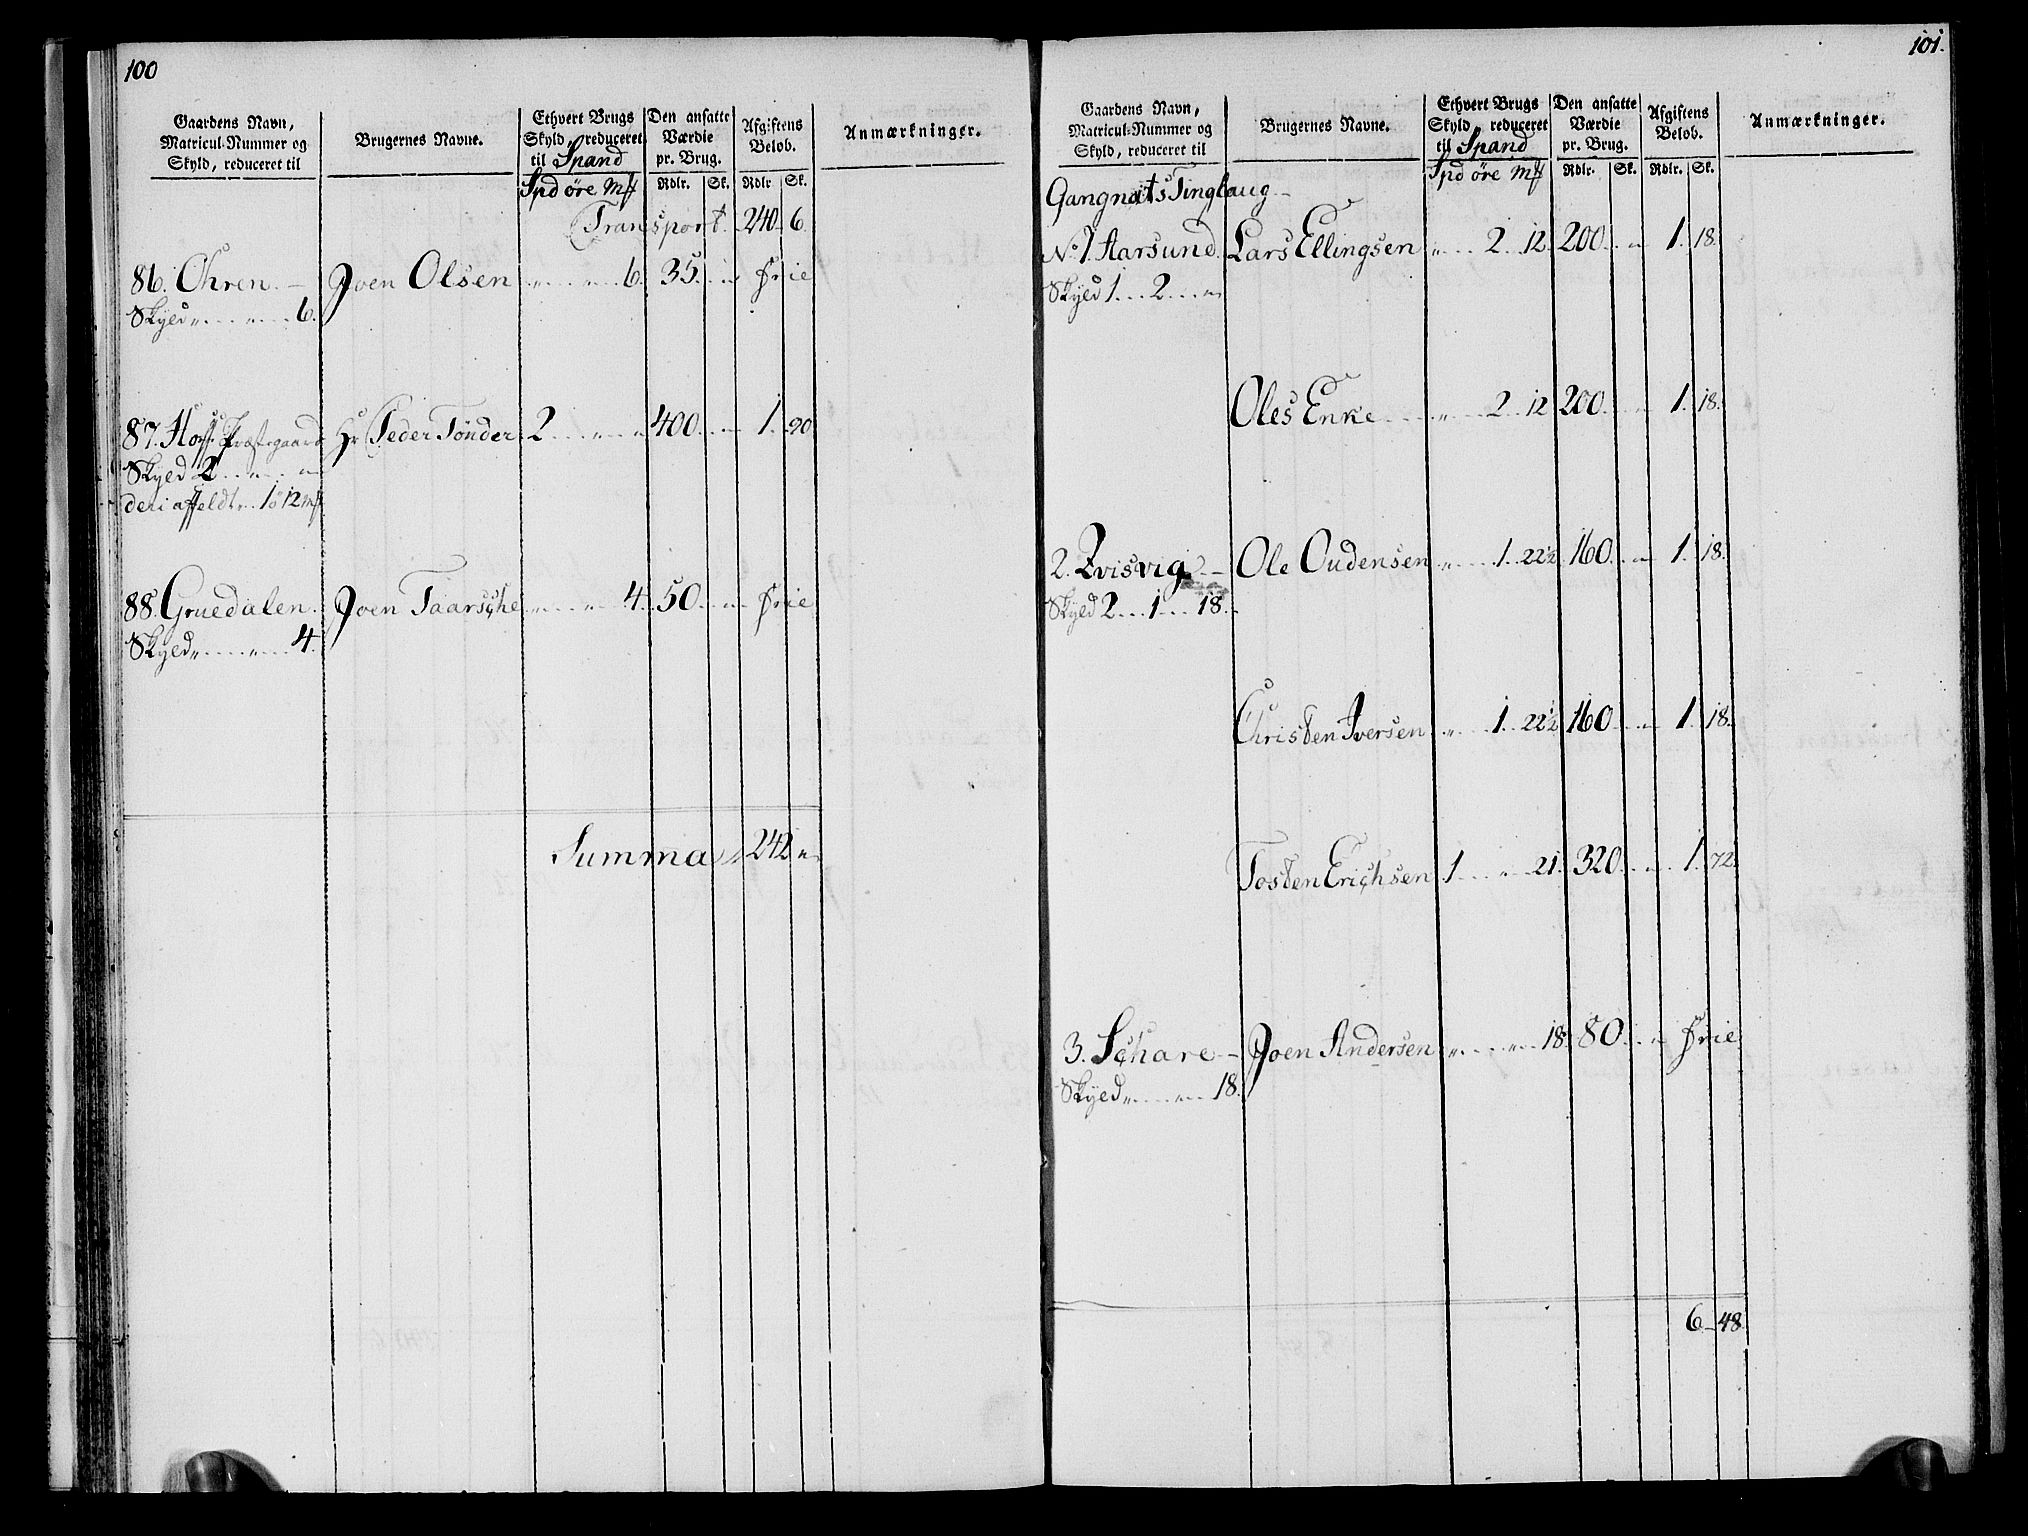 100
Gaardens Navn, Matricul-Nummer og Skyld, reduceret til
Brugernes Navne.
Ethvert Brugs Skyld, reduceret til Spand
Den ansatte Værdie pr. Brug.
Afgiftens Beløb.
Anmærkninger.
Spd öre Mk Rdlr. Sk. Rdlr Sk.
Transport. 240. 6.
86. Ohren. — Joen Olsen „ „ 6. 35. „ Frie
Skyld „ „ 6.
87. Hoffs Præstegaard Hr Peder Tönder 2 „ „ 400. „ 1. 20
Skyld 2 „ „
deri affeldt „ 1ö 12mk
88. Gruedalen. Joen Taarsche „ „ 4. 50. „ Frie
Skyld „ „ 4.
Summa 242 „
101.
Gaardens Navn, Matricul-Nummer og Skyld, reduceret til
Brugernes Navne.
Ethvert Brugs Skyld, reduceret til Spand
Den ansatte Værdie pr. Brug.
Afgiftens Beløb.
Anmærkninger.
Spd öre Mk Rdlr. Sk. Rdlr. Sk.
Gangnats Tinglaug —
No 1. Aarsund. Lars Ellingsen „ 2. 12. 200. „ 1. 18.
Skyld 1 2 „
Oles Enke „ 2. 12 200. „ 1. 18.
2. Qvisvig — Ole Oudensen „ 1. 22½ 160. „ 1. 18.
Skyld 2 1 18.
Christen Iversen „ 1. 22½ 160. „ 1. 18.
Tosten Erichsen 1 „ 21. 320. „ 1. 72.
3. Schare — Joen Andersen „ „ 18. 80. „ Frie
Skyld „ „ 18.
6 — 48.